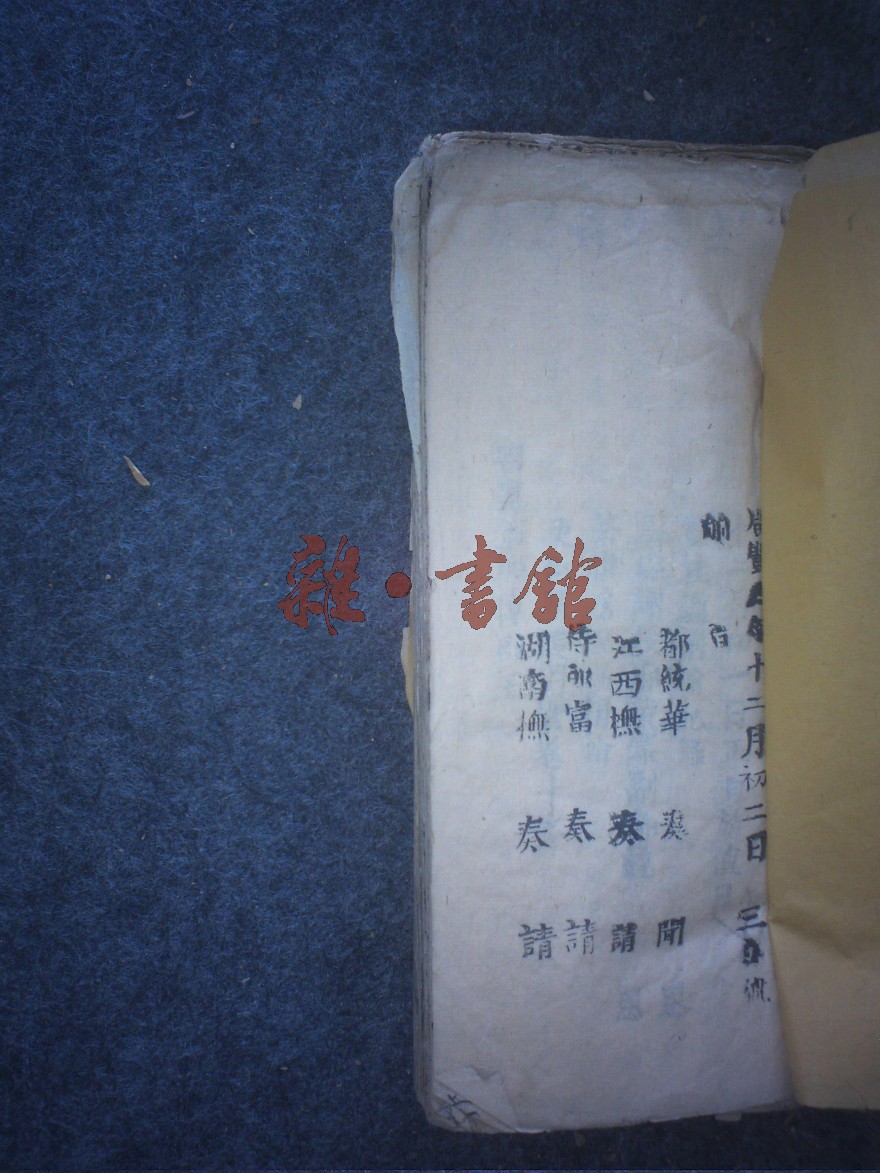 咸豐年十二月初二日 三 號
都統華 奏 聞
江西撫 奏 請
侍郎富 奏 請
湖南撫 奏 請
雜·書館